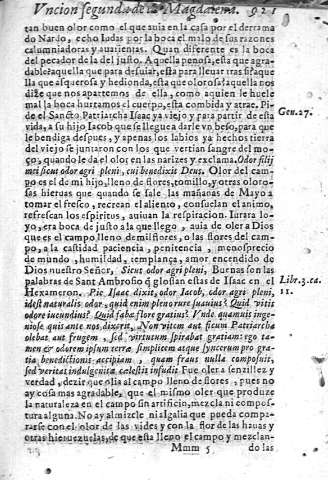 Vncion segunda de la Magdalena. 921
tan buen olor como el que auia en la casa por el derrama
do Nardo, echo Iudas por la boca el malo de sus razones
calumniadoras y auarientas. Quan diferente es la boca
del pecador de la del justo. Aquella penosa, esta que agra-
dable: aquella que para desuiar, esta para lleuar tras si: aque
lla que asquerosa y hedionda, esta que olorosa: aquella nos
dize que nos apartemos de ella, como aquien le huele
mal la boca hurtamos el cuerpo, esta combida y atrae. Pi-
de el Sancto Patriarcha Isaac ya viejo y para partir de esta
vida, a su hijo Iacob que se llegue a darle vn beso, para que
le bendiga despues, y apenas los labios ya hechos tierra
del viejo se juntaron con los que vertian sangre del mo-
ço, quando le da el olor en las narizes y exclama. Odor filij
mei sicut odor agri pleni, cui benedixit Deus. Olor del cam-
po es el de mi hijo, lleno de flores, tomillo, y otras oloro-
sas hieruas que quando se sale las mañanas de Mayo a
tomar el fresco, recrean el aliento, consuelan el animo,
refrescan los espiritus, auiuan la respiracion. Iurara lo-
yo, era boca de justo a la que llego, auia de oler a Dios
que es el campo lleno de mil flores, o las flores del cam-
po, a la castidad paciencia, penitencia, menosprecio
de mundo, humildad, templança, amor encendido de
Dios nuestro Señor, Sicut odor agri pleni, Buenas son las
palabras de Sant Ambrosio q̃ glosan estas de Isaac en el
Hexameron. Pie Isaac dixit, odor Iacob, odor agri pleni,
idest naturalis odor, quid enim pleno rure suauius? Quid vitis
odore iucundius? Quid fabæ flore gratius? Vnde quamuis inge-
niose quis ante nos dixerit, Non vitem aut ficum Patriarcha
olebat aut frugem, sed virtutum spirabat gratiam: ego ta-
men & odorem ipsum terræ simplicem atque syncerum pro gra-
tia benedictionis accipiam, quam fraus nulla composuit,
sed veritas indulgentiæ cælestis infudit. Fue oler a senzillez y
verdad, dezir que olia al campo lleno de flores, pues no
ay cosa mas agradable, que el mismo oler que produze
la naturaleza en el campo sin artificio, mezcla ni compos-
tura alguna. No ay almizcle ni algalia que pueda compa-
rarse con el olor de las vides y con la flor de las hauas y
otras hieruezuelas, de que esta lleno el campo y mezclan-
Mmm 5 do las
Gen. 27.
Lib. 3. ca.
11.